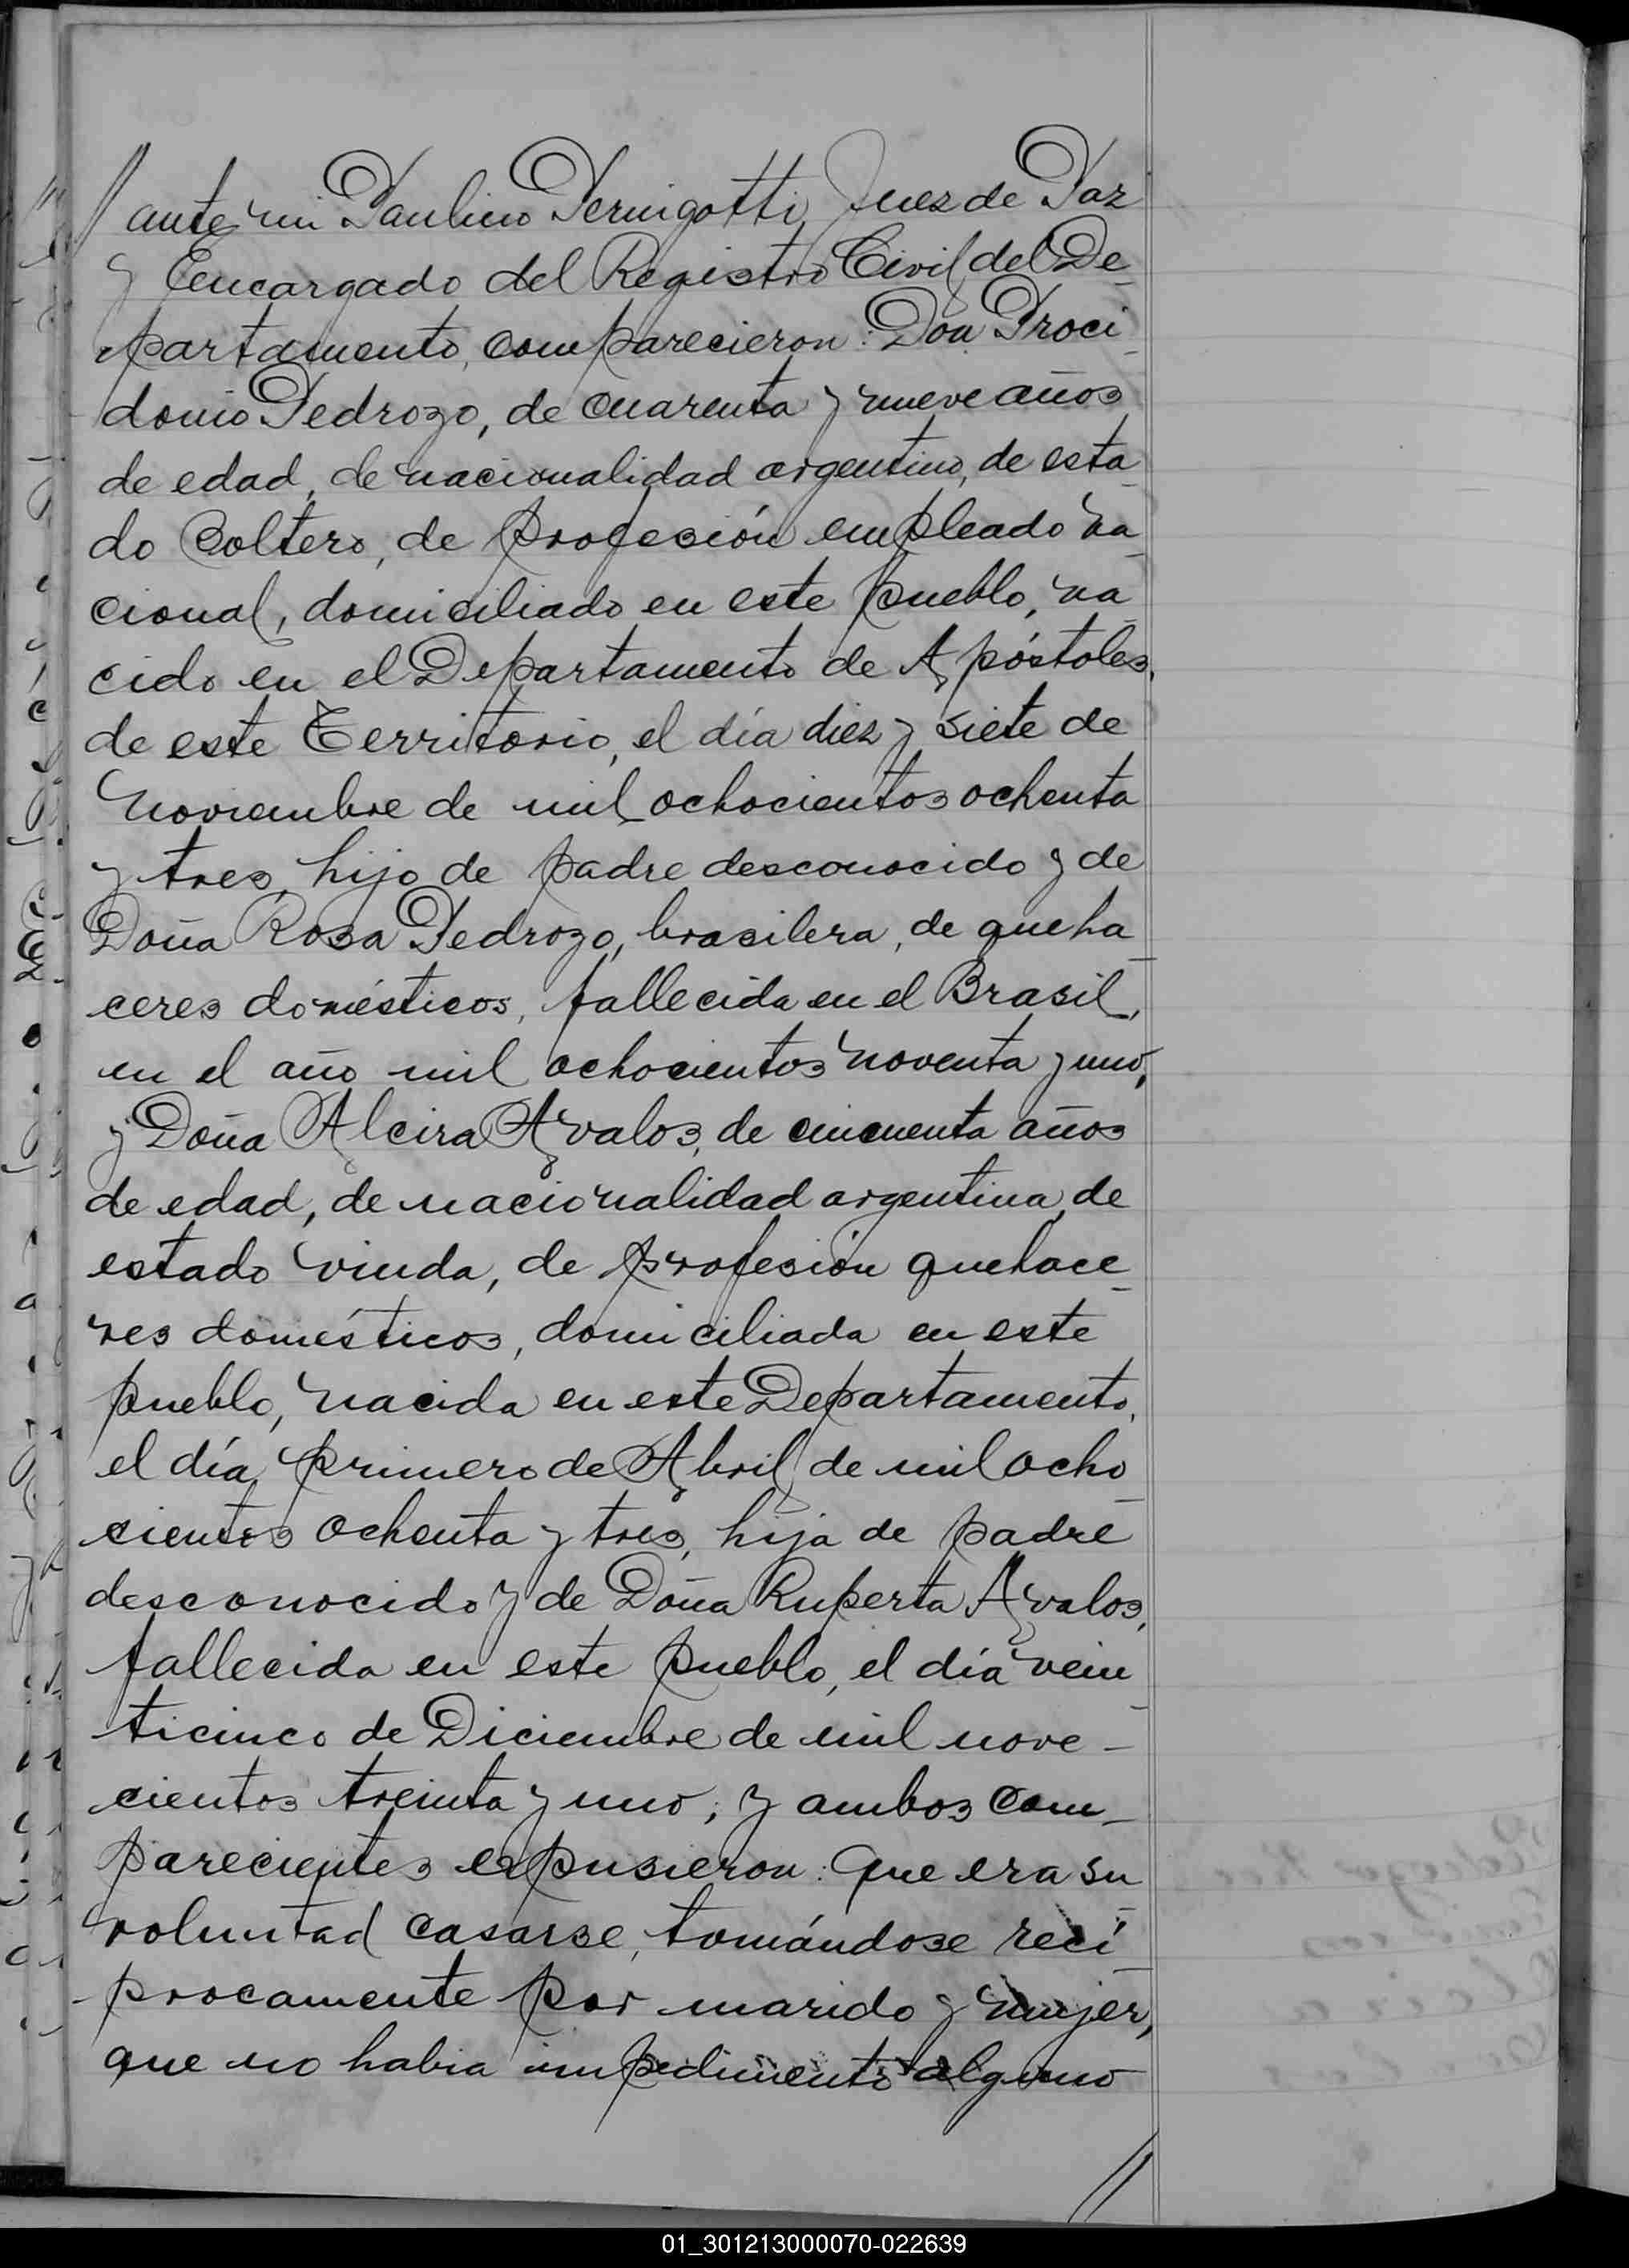 // ante mi Paulino Pernigotti, Juez de Paz
y Encargado del Registro Civil del De-
partamento, comparecieron: Don Proci-
donio Pedrozo, de cuarenta y nueve años
de edad, de nacionalidad argentino, de esta-
do soltero, de profesión empleado na-
cional, domiciliado en este pueblo, na-
cido en el Departamento de Apóstoles,
de este Territorio, el día diez y siete de
Noviembre de mil ochocientos ochenta
y tres, hijo de padre desconocido y de
Doña Rosa Pedrozo, brasilera, de queha-
ceres domésticos, fallecida en el Brasil,
en el año mil ochocientos noventa y uno,
y Doña Alcira Arvalos, de cincuenta años
de edad, de nacionalidad argentina, de
estado viuda, de profesión quehace-
res domésticos, domiciliada en este
pueblo, nacida en este Departamento,
el día primero de Abril de mil ocho-
cientos ochenta y tres, hija de padre
desconocido y de Doña Ruperta Arvalos,
fallecida en este pueblo, el día vein-
ticinco de Diciembre de mil nove-
cientos treinta y uno; y ambos com-
parecientes expusieron: Que era su
voluntad casarse, tomándose recí-
procamente por marido y mujer,
que no habia impedimento alguno
//
01_301213000070-022639